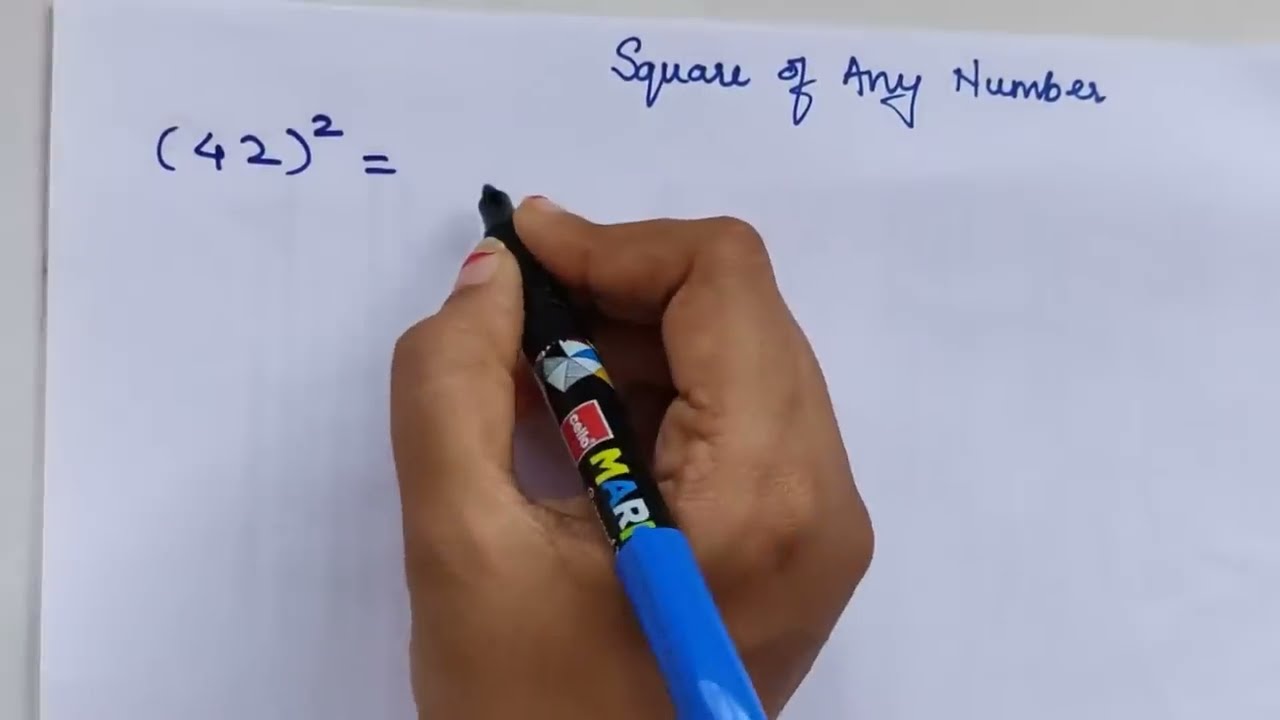 Square of Any Number
(42)² =
cello
MAR